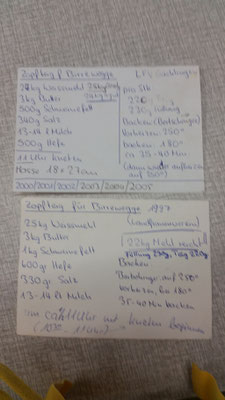 Zopfteig f. Birewegge
kg Weissmehl
3kg Butter
500g Schweinefett
340g Salz
13-14 lt Milch
500g Hefe
11 Uhr kneten
Masse 18 x 27cm
pro Stk
220g
220g Füllung
Backen
Vorheizen: 250°
backen: 180°
ca 35-40 Min
auf 250°
2000/2001/2002/2003/2004/2005
Zopfteig für Birewegge 1997
25kg Weissmehl
3kg Butter
1kg Schweinefett
600gr Hefe
330gr Salz
13-14 lt Milch
22kg Mehl reicht
Füllung 250g, Teig 220g
Backen
auf 250°
vorheizen, bei 180°
35-40 Min backen
um ca 11 Uhr mit kneten beginnen